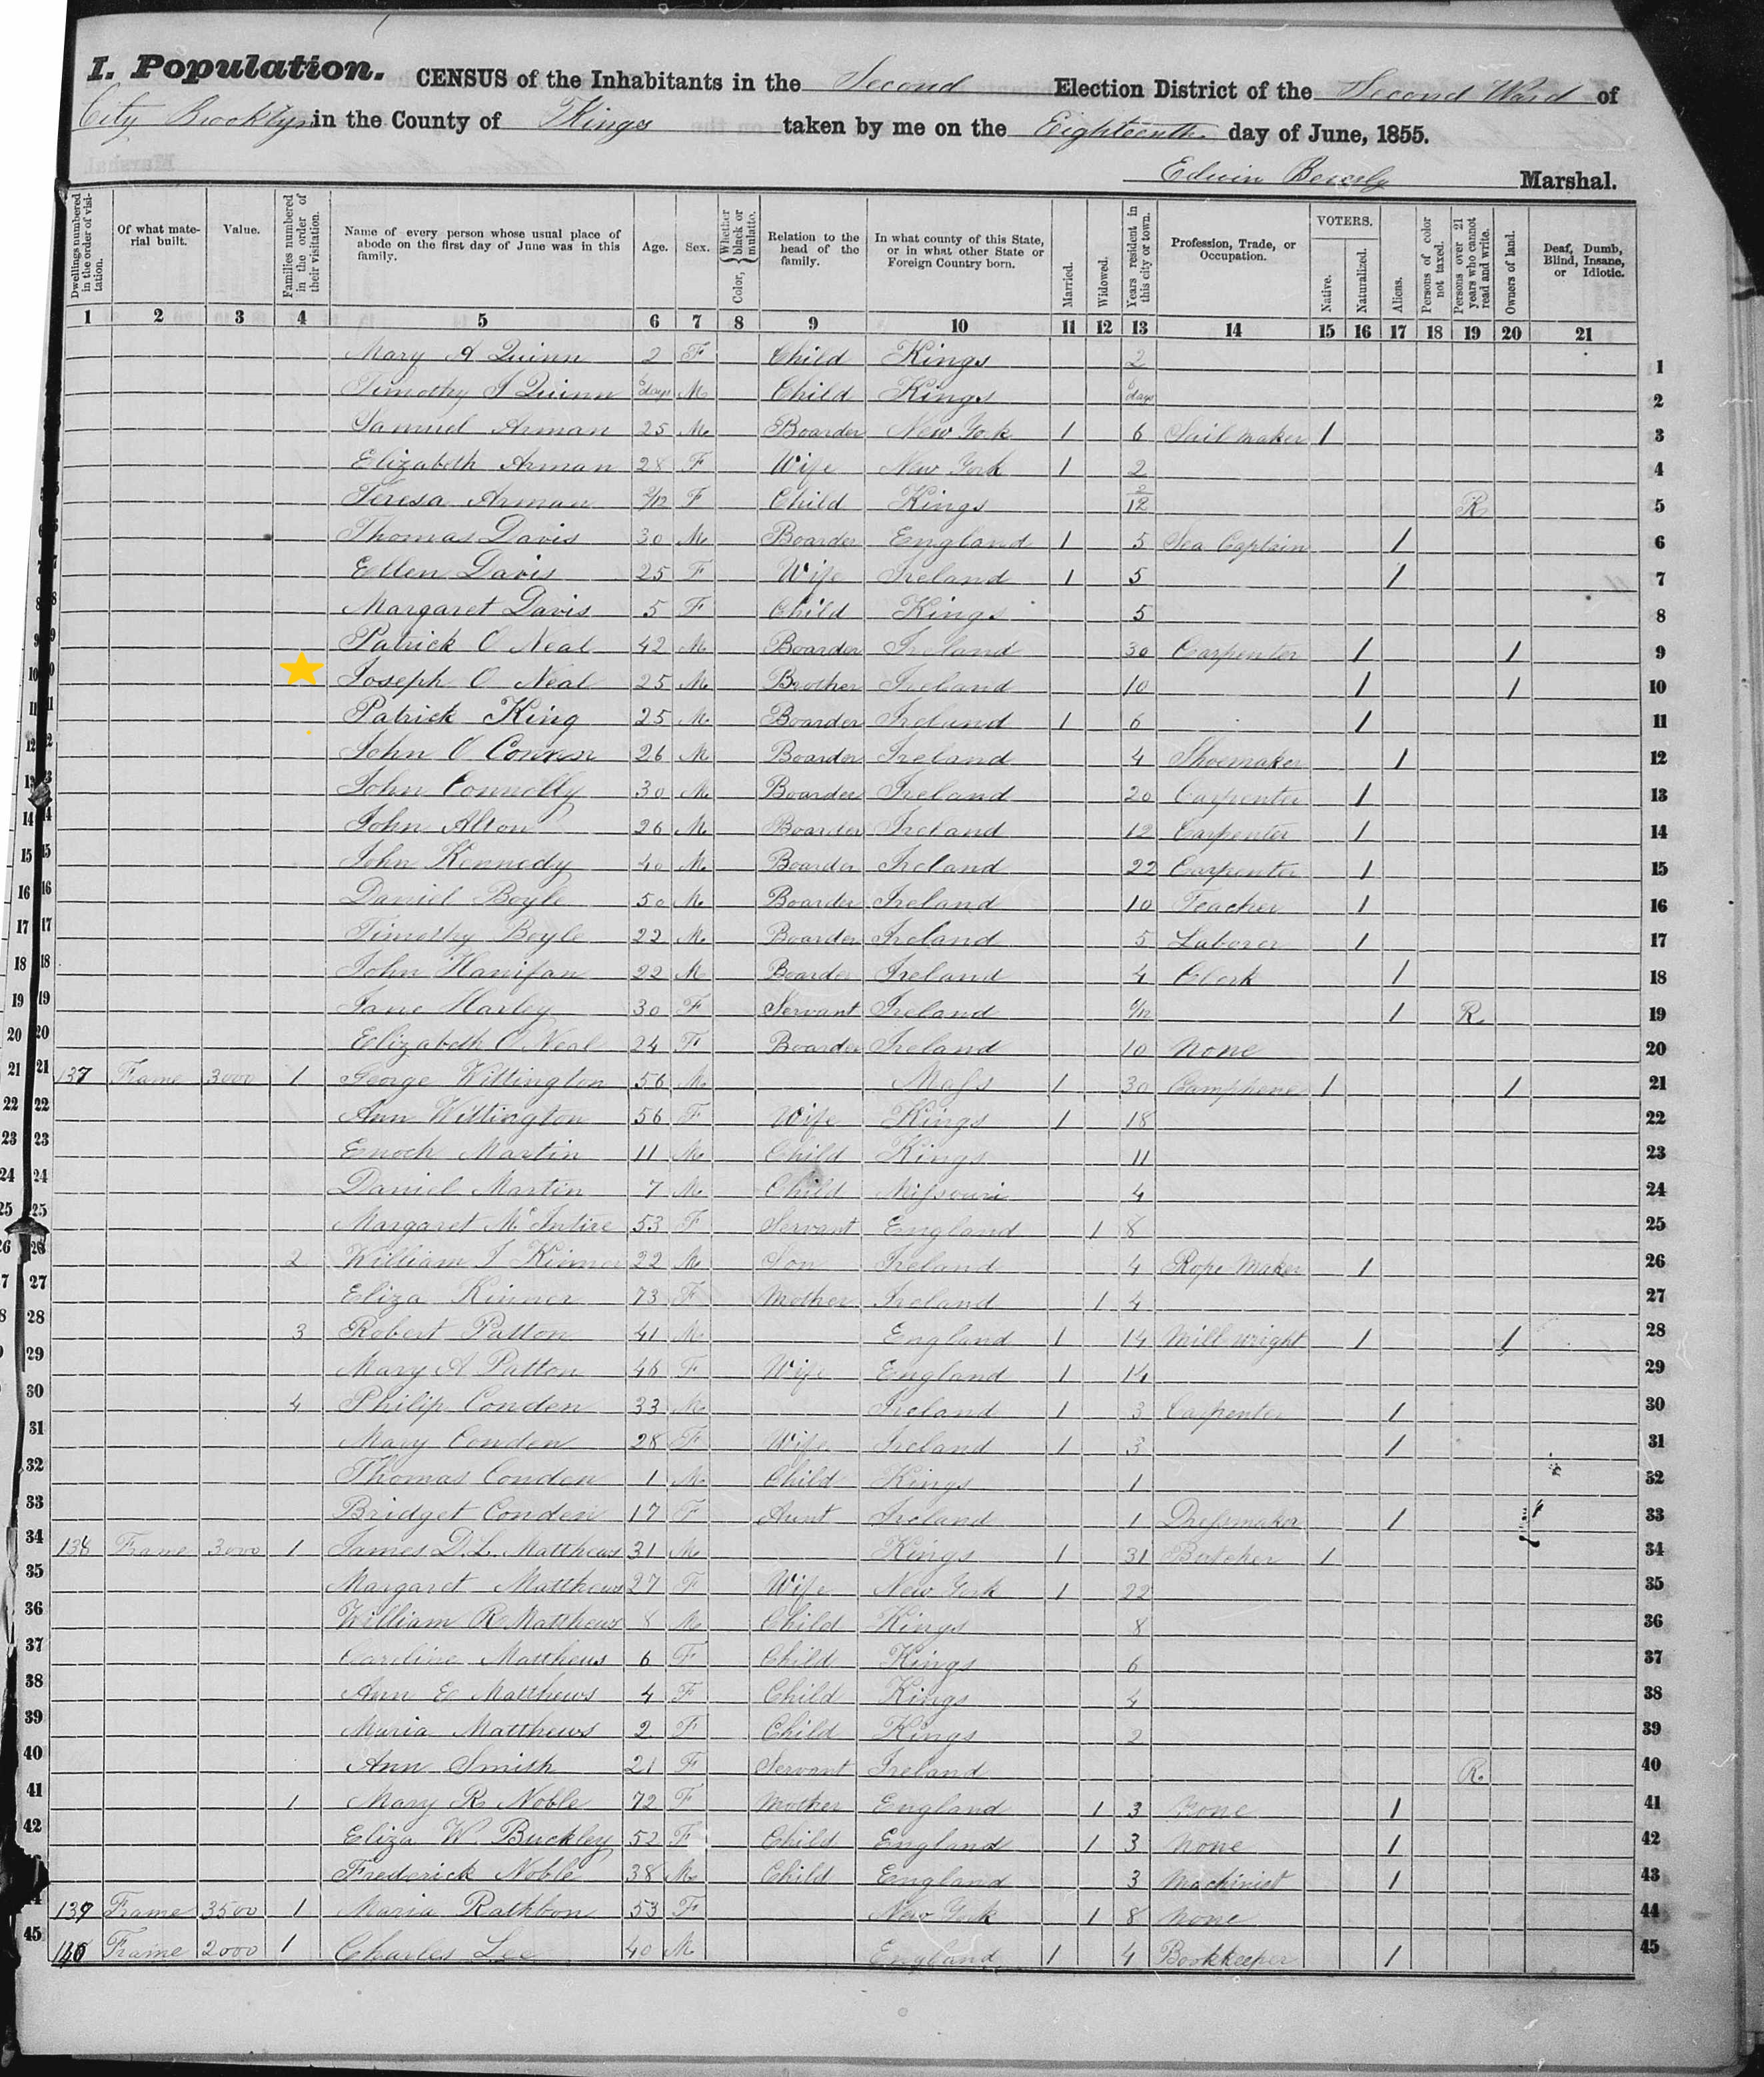 I. Population. CENSUS of the Inhabitants in the Second Election District of the Second Ward of
City Brooklyn in the County of Kings taken by me on the Eighteenth day of June, 1855.
Edwin Marshal.
Dwellings numbered in the order of visitation. Of what material built. Value. Families numbered in the order of their visitation. Name of every person whose usual place of abode on the first day of June was in this family. Age. Sex. Color, Whether black or mulatto. Relation to the head of the family. In what county of this State, or in what other State or Foreign Country born. Married. Widowed. Years resident in this city or town. Profession, Trade, or Occupation. VOTERS. Native. Naturalized. Aliens. Persons of color not taxed. Persons over 21 years who cannot read and write. Owners of land. Deaf, Dumb, Blind, Insane, or Idiotic.
1 2 3 4 5 6 7 8 9 10 11 12 13 14 15 16 17 18 19 20 21
Mary A Quinn 2 F Child Kings 2 1
Timothy J Quinn days M Child Kings days 2
Samuel Arman 25 M Boarder New York 1 6 Sail Maker 1 3
Elizabeth Arman 28 F Wife New York 1 2 4
Teresa Arman 2/12 F Child Kings 2/12 R 5
6 Thomas Davis 30 M Boarder England 1 5 Sea Captain 1 6
7 Ellen Davis 25 F Wife Ireland 1 5 1 7
8 Margaret Davis 5 F Child Kings 5 8
9 Patrick O Neal 42 M Boarder Ireland 30 Carpenter 1 1 9
10 Joseph O Neal 25 M Brother Ireland 10 1 1 10
11 Patrick King 25 M Boarder Ireland 1 6 1 11
12 John O Connor 26 M Boarder Ireland 4 Shoemaker 1 12
13 John Connolly 30 M Boarder Ireland 20 Carpenter 1 13
14 John Alton 26 M Boarder Ireland 12 Carpenter 1 14
15 John Kennedy 40 M Boarder Ireland 22 Carpenter 1 15
16 Daniel Boyle 50 M Boarder Ireland 10 Teacher 1 16
17 Timothy Boyle 22 M Boarder Ireland 5 Laborer 1 17
18 John Hanifan 22 M Boarder Ireland 4 Clerk 1 18
19 Jane Harley 30 F Servant Ireland 1 R. 19
20 Elizabeth O Neal 24 F Boarder Ireland 10 None 20
21 137 Frame 3000 1 George Wittington 56 M Mass 1 30 Camphene 1 1 21
22 Ann Wittington 56 F Wife Kings 1 18 22
23 Enoch Martin 11 M Child Kings 11 23
24 Daniel Martin 7 M Child Missouri 4 24
25 Margaret McIntire 53 F Servant England 1 8 25
26 2 William J 22 M Son Ireland 4 Rope Maker 1 26
27 Eliza Kinner 73 F Mother Ireland 1 4 27
28 3 Robert Patton 41 M England 1 14 Mill wright 1 1 28
29 Mary A Patton 46 F Wife England 1 14 29
30 4 Philip Conden 33 M Ireland 1 3 Carpenter 1 30
31 Mary Conden 28 F Wife Ireland 1 3 1 31
32 Thomas Conden 1 M Child Kings 1 32
33 Bridget Conden 17 F Aunt Ireland 1 Dressmaker 1 33
34 138 Frame 3000 1 James D. L. Matthews 31 M Kings 1 31 Butcher 1 34
35 Margaret Matthews 27 F Wife New York 1 22 35
36 William R Matthews 8 M Child Kings 8 36
37 Caroline Matthews 6 F Child Kings 6 37
38 Ann E Matthews 4 F Child Kings 4 38
39 Maria Matthews 2 F Child Kings 2 39
40 Ann Smith 21 F Servant Ireland R. 40
41 1 Mary R Noble 72 F Mother England 1 3 None 1 41
42 Eliza W. Buckley 52 F Child England 1 3 None 1 42
Frederick Noble 38 M Child England 3 Machinist 1 43
139 Frame 3500 1 Maria Rathbon 53 F New York 1 8 None 44
45 140 Frame 2000 1 Charles Lee 40 M England 1 4 Bookkeeper 1 45